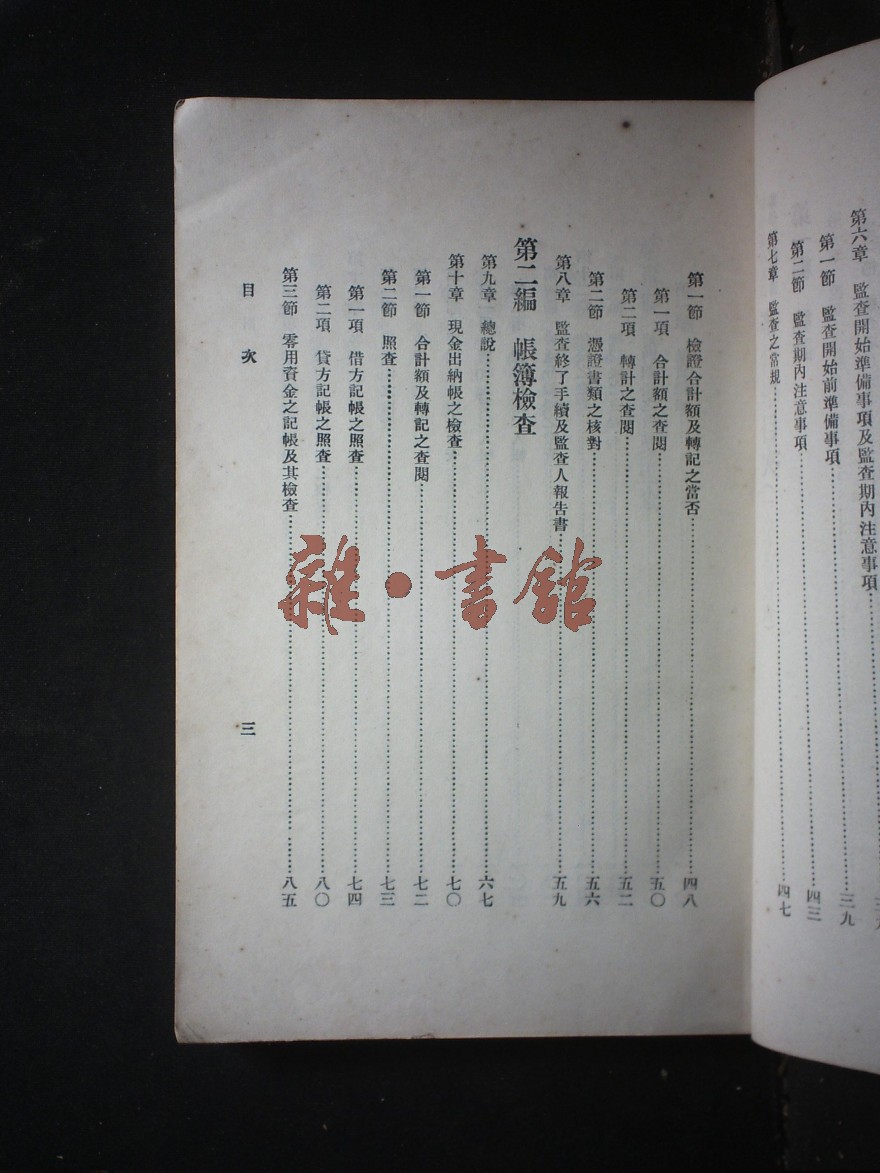 第六章 監査開始準備事項及監査期內注意事項
第一節 監査開始前準備事項……三九
第二節 監査期內注意事項……四三
第七章 監査之常規……四七
第一節 檢證合計額及轉記之當否……四八
第一項 合計額之查閱……五〇
第二項 轉計之查閱……五二
第二節 憑證書類之核對……五六
第八章 監查終了手續及監查人報告書……五九
第二編 帳簿檢查
第九章 總說……六七
第十章 現金出納帳之檢查……七〇
第一節 合計額及轉記之查閱……七二
第二節 照查……七三
第一項 借方記帳之照查……七四
第二項 貸方記帳之照查……八〇
第三節 零用資金之記帳及其檢查……八五
目次
三
雜·書館